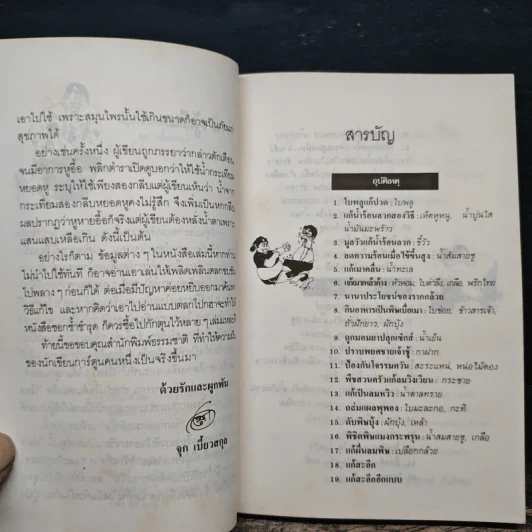 เอาไปใช้ เพราะสมุนไพรนั้นใช้เกินขนาดก็อาจเป็นภัยแก่
สุขภาพได้
อย่างเช่นครั้งหนึ่ง ผู้เขียนถูกภรรยาว่ากล่าวตักเตือน
จนมีอาการหูอื้อ พลิกตำราเปิดดูบอกว่าให้ใช้น้ำกระเทียม
หยอดหู ระบุให้ใช้เพียงสองกลีบแต่ผู้เขียนเห็นว่า น้ำจาก
กระเทียมสองกลีบหยอดหูคงไม่รู้สึก จึงเพิ่มเป็นหกกลีบ
ผลปรากฏว่าหูหายอื้อก็จริงแต่ผู้เขียนต้องหลั่งน้ำตาเพราะ
แสนแสบเหลือเกิน ดังนี้เป็นต้น
อย่างไรก็ตาม ข้อมูลต่างๆ ในหนังสือเล่มนี้หากท่าน
ไม่นำไปใช้ทันที ก็อาจอ่านเอาเล่นให้เพลิดเพลินตลกขบขัน
ไปพลางๆ ก่อนก็ได้ ต่อเมื่อมีปัญหาค่อยหยิบออกมาค้นหา
วิธีแก้ไข และหากคิดว่าเอาไปอ่านแบบตลกไปกลาจะทำให้
หนังสือชอกช้ำชำรุด ก็ควรซื้อไปกักตุนไว้หลายๆ เล่ม
ท้ายนี้ขอขอบคุณสำนักพิมพ์ธรรมชาติ ที่ทำให้ความฝัน
ของนักเขียนการ์ตูนคนหนึ่งเป็นจริงขึ้นมา
ด้วยรักและผูกพัน
จุก เบี้ยวสกุล
สารบัญ
อุบัติเหตุ
1. ใบพลูแก้ปวด : ใบพลู
2. แก้น้ำร้อนลวกสองวิธี : เห็ดหูหนู, น้ำปูนใส
น้ำมันมะพร้าว
3. มูลวัวแก้น้ำร้อนลวก : ขี้วัว
4. ลดความร้อนเมื่อใช้ขึ้นสูง : น้ำส้มสายชู
5. แก้เมาคลื่น : น้ำทะเล
6. เข้มาหาแก้ก้าง : หัวหอม, ใบตำลึง, เกลือ, พริกไทย
7. นานาประโยชน์ของรากกล้วย
8. กินอาหารเป็นพิษเบื่อเมา : ใบข่อย, ข้าวสารเจ้า,
ถั่วฝักยาว, ผักบุ้ง
9. ถูกมอมยาปลุกเซ็กส์ : น้ำเย็น
10. ปราบพยศชายเจ้าชู้ : กาฝาก
11. ป้องกันโจรรมควัน : สะระแหน่, หน่อไม้ดอง
12. พืชสวนครัวแก้ลมวิงเวียน : กระชาย
13. แก้เป็นลมหิว : น้ำตาลทราย
14. ถล่มแผลพุพอง : ใบมะละกอ, กะทิ
15. ดับพิษบุ้ง : ผักบุ้ง, เหล้า
16. พิชิตพิษแมงกะพรุน : น้ำส้มสายชู, เกลือ
17. แก้ผื่นลมพิษ : เปลือกกล้วย
18. แก้สะอึก
19. แก้สะอึกอีกแบบ